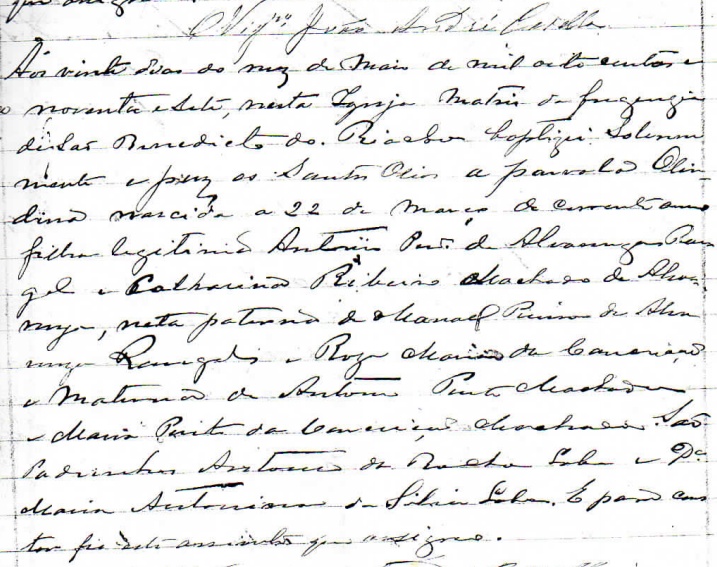 que assigno.
O Vigrº João André Casella
Aos vinte dias do mez de Maio de mil oito centos e
noventa e sete, nesta Igreja Matriz da freguezia
de São Benedicto do Riacho baptizei Solemne
mente e puz os Santos Oleos a parvola Olin-
dina nascida a 22 de Março do corrente anno
filha legitima Antonio Perª de Alvarenga Ran
gel e Catharina Ribeiro Machado de Alva-
renga, neta paterna de Manoel Pereira de Alva
renga Rangel e Roza Maria da Conceição
e Materna de Antonio Machado
e Maria da Conceição Machado. São
Padrinhos Antonio da Rocha Loba e Dª
Maria Antonina da Silva Loba. E para cons
tar fiz este assento que assigno.